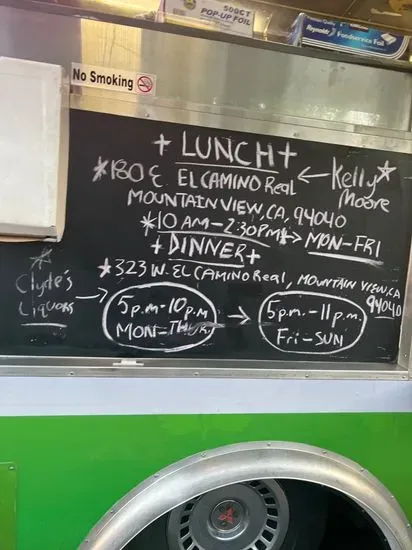 500CT
POP-UP FOIL
Reynolds Foodservice Foil
No Smoking
+ LUNCH +
*180 E EL CAMINO Real ← Kelly* Moore
MOUNTAIN VIEW, CA, 94040
*10 AM-2:30PM → MON-FRI
+ DINNER +
*323 W. EL CAMINO Real, MOUNTAIN VIEW, CA 94040
* Clyde's Liquors →
5p.m-10p.m MON-THUR → 5p.m.-11p.m. Fri-SUN